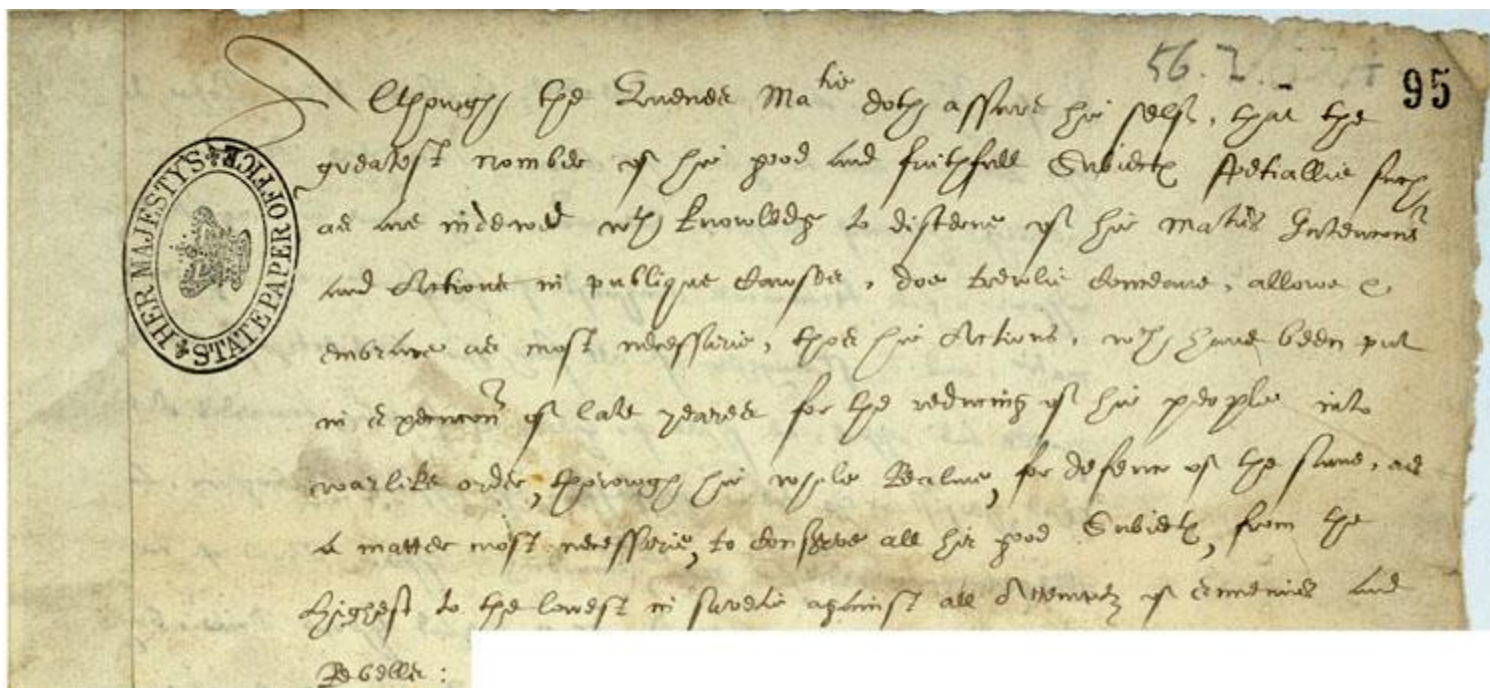 56. I.
95
Although the Quenes Ma^tie doth assure hir self, that the
greatest nomber of hir good and faithfull Subiectes spetiallie such
as are indewed wth knowledg to discerne of hir Maties Intencons
and Actions in publique cawses, doe trewlie conceave, allowe &
embrace as most necessarie, thes hir Actions, wch have been put
in execucon of late yeares for the reducing of hir people into
warlike order, thorowgh hir whole Realme, for defence of the same, as
a matter most necessarie, to conserve all hir good Subiectes, from the
highest to the lowest in suretie against all Attemptes of ennemies and
Rebelles:
HER MAJESTY'S STATE PAPER OFFICE